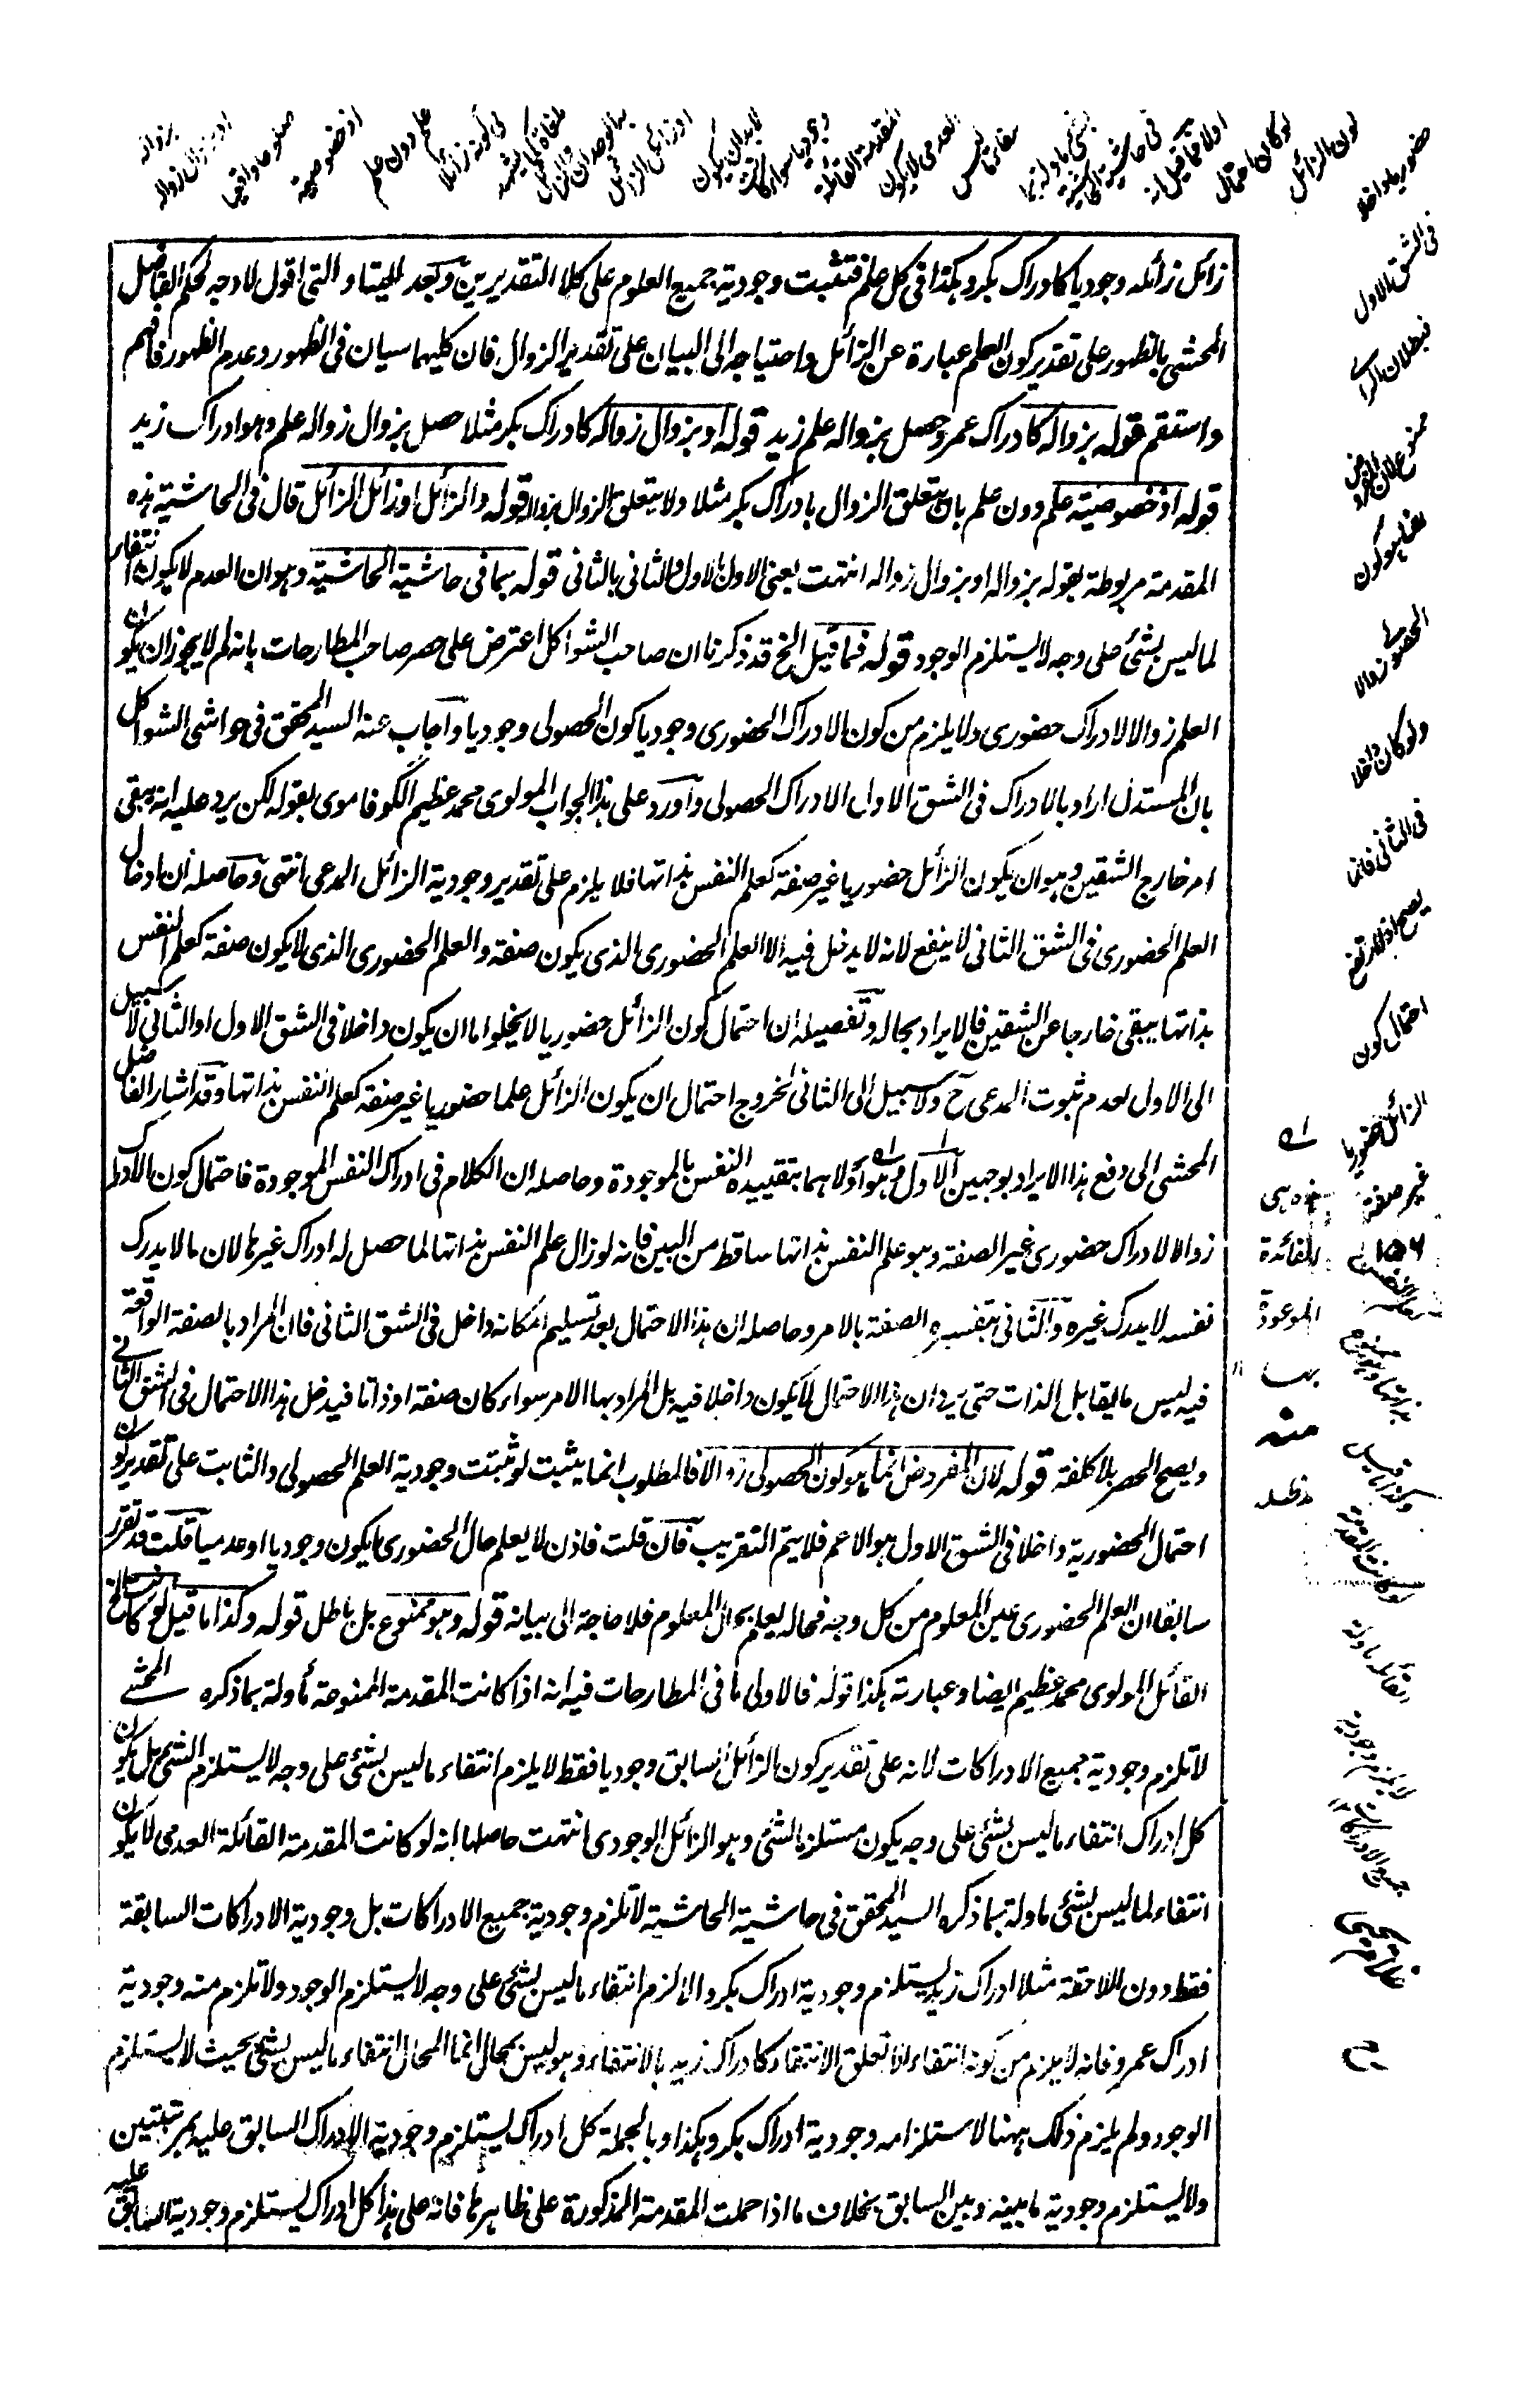 زائل زائله وجوديا كادراك بكر وهكذا فى كل علم فتثبت وجودية جميع العلوم على كلا التقديرين وبعد اللتيا والتى اقول لا وجه لحكم الفاضل
المحشى بالظهور على تقدير كون العلم عبارة عن الزائل واحتياجه الى البيان على تقدير الزوال فان كليهما سيان فى الظهور وعدم الظهور فافهم
واستقم قوله بزواله كادراك عمرو حصل بزواله علم زيد قوله او بزوال زواله كادراك بكر مثلا حصل بزوال زواله علم وهو ادراك زيد
قوله اذ خصوصية علم دون علم بان يتعلق الزوال بادراك بكر مثلا ولا يتعلق الزوال بزواله قوله والزائل او زائل الزائل قال فى الحاشية هذه
المقدمة مربوطة بقوله بزواله او بزوال زواله انتهت يعنى الاول بالاول والثانى بالثانى قوله بما فى حاشية الحاشية وهو ان العدم لا يكون انتفاء
لما ليس بشئ على وجه لا يستلزم الوجود قوله فما قيل الخ قد ذكرنا ان صاحب الشواكل اعترض على حصر صاحب المطارحات بانه لم لا يجوز ان يكون
العلم زوالا لادراك حضورى ولا يلزم من كون الادراك الحضورى وجوديا كون الحصولى وجوديا واجاب عنه السيد المحقق فى حواشى الشواكل
بان المستدل اراد بالادراك فى الشق الاول الادراك الحصولى واورد على هذا الجواب المولوى محمد عظيم الگوفاموى بقوله لكن يرد عليه انه يبقى
امر خارج الشقين وهو ان يكون الزائل حضوريا غير صفة كعلم النفس بذاتها فلا يلزم على تقدير وجودية الزائل المدعى انتهى وحاصله ان ادخال
العلم الحضورى فى الشق الثانى لا ينفع لانه لا يدخل فيه الا العلم الحضورى الذى يكون صفة والعلم الحضورى الذى لا يكون صفة كعلم النفس
بذاتها يبقى خارجا عن الشقين فالايراد بحاله وتفصيله ان احتمال كون الزائل حضوريا لا يخلوا اما ان يكون داخلا فى الشق الاول او الثانى لا سبيل
الى الاول لعدم ثبوت المدعى ح ولا سبيل الى الثانى لخروج احتمال ان يكون الزائل علما حضوريا غير صفة كعلم النفس بذاتها وقد اشار الفاضل
المحشى الى دفع هذا الايراد بوجهين الاول وهو اولاهما بتقييده النفس بالموجودة وحاصله ان الكلام فى ادراك النفس الموجودة فاحتمال كون الادراك
زوالا لادراك حضورى غير الصفة وهو علم النفس بذاتها ساقط من البين فانه لو زال علم النفس بذاتها لما حصل له ادراك غيرها لان ما لا يدرك
نفسه لا يدرك غيره والثانى بتفسيره الصفة بالامر وحاصله ان هذا الاحتمال بعد تسليم امكانه داخل فى الشق الثانى فان المراد بالصفة الواقعة
فيه ليس ما يقابل الذات حتى يرد ان هذا الاحتمال لا يكون داخلا فيه بل المراد بها الامر سواء كان صفة او ذاتا فيدخل هذا الاحتمال فى الشق الثانى
ويصح الحصر بلا كلفة قوله لان المفروض انما هو كون الحصولى زوالا فالمطلوب انما يثبت لو ثبتت وجودية العلم الحصولى والثابت على تقدير كون
احتمال الحضورية داخلا فى الشق الاول هو الاعم فلا يتم التقريب فان قلت فاذن لا يعلم حال الحضورى ايكون وجوديا او عدميا قلت قد تقرر
سابقا ان العلم الحضورى عين المعلوم من كل وجه فحاله يعلم بحال المعلوم فلا حاجة الى بيانه قوله وهو ممنوع بل باطل قوله وكذا ما قيل لو كانت الخ
القائل المولوى محمد عظيم ايضا وعبارته هكذا قوله فالاولى ما فى المطارحات فيه انه اذا كانت المقدمة الممنوعة مأولة بما ذكره المحشى
لا تلزم وجودية جميع الادراكات لانه على تقدير كون الزائل السابق وجوديا فقط لا يلزم انتفاء ما ليس بشئ على وجه لا يستلزم الشئ بل يكون
كل ادراك انتفاء ما ليس بشئ على وجه يكون مستلزما لشئ وهو الزائل الوجودى انتهت حاصلها انه لو كانت المقدمة القائلة العدمى لا يكون
انتفاء لما ليس بشئ ماولة بما ذكره السيد المحقق فى حاشية الحاشية لا تلزم وجودية جميع الادراكات بل وجودية الادراكات السابقة
فقط دون اللاحقة مثلا ادراك زيد يستلزم وجودية ادراك بكر والا لزم انتفاء ما ليس بشئ على وجه لا يستلزم الوجود ولا تلزم منه وجودية
ادراك عمرو فانه لا يلزم من كونه انتفاء الا تعلق الانتفاء كادراك زيد بالانتفاء وهو ليس بمحال انما المحال انتفاء ما ليس بشئ بحيث لا يستلزم
الوجود ولم يلزم ذلك ههنا لاستلزامه وجودية ادراك بكر وهكذا وبالجملة كل ادراك يستلزم وجودية الادراك السابق عليه بمرتبتين
ولا يستلزم وجودية ما بينه وبين السابق بخلاف ما اذا حملت المقدمة المذكورة على ظاهرها فانه على هذا كل ادراك يستلزم وجودية السابق عليه
حضوريا داخلا
فى الشق الاول
فبطلان الحصر
ممنوع لان المفروض
انما هو كون
الحصولى زوالا
ولو كان داخلا
فى الثانى فانما
يصح اذا لا يرتفع
احتمال كون
الزائل حضوريا
غير صفة
للفائدة
الموعودة
بها
منه